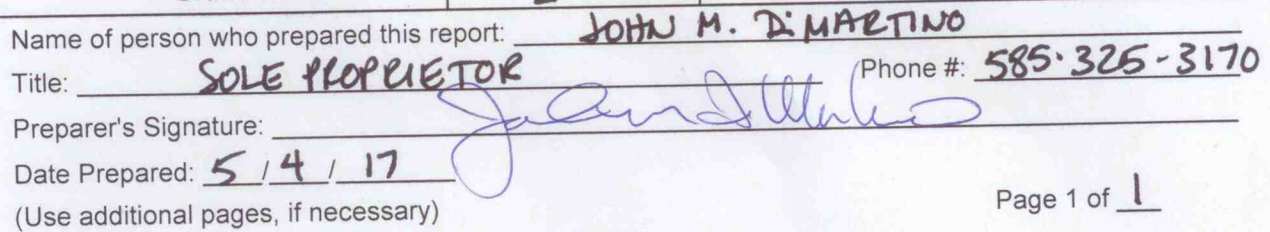 Name of person who prepared this report: JOHN M. DiMARTINO
Title: SOLE PROPRIETOR Phone #: 585·325-3170
Preparer's Signature:
Date Prepared: 5 / 4 / 17
(Use additional pages, if necessary) Page 1 of 1